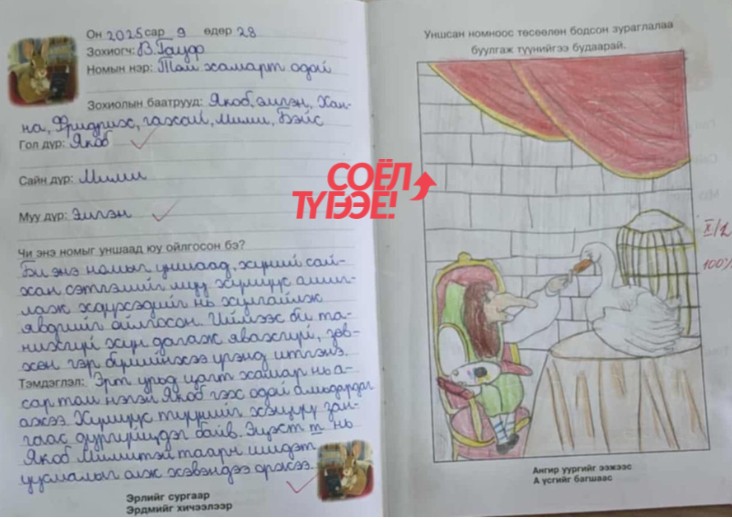 Он 2025 сар 9 өдөр 28
Зохиогч: В. Гауф
Номын нэр: Том хамарт одой
Зохиолын баатрууд: Якоб, эмгэн, Хан-
на, Фридрих, галзай, Мими, Бэйс
Гол дүр: Якоб
Сайн дүр: Мими
Муу дүр: Эмгэн
Чи энэ номыг уншаад юу ойлгосон бэ?
Би энэ номыг уншаад, хүний сай-
хан сэтгэлийг муу хүмүүс ашиг-
лаж хүүхэдийг нь хулгайлж
явдгийг ойлгосон. Иймээс би та-
нихгүй хүн дагаж явахгүй, зөв-
хөн гэр бүлийнхээ үгэнд итгэнэ.
Тэмдэглэл: Эрт урьд цагт хамар нь а-
сар том нэгэн Якоб гэх одой амьдардаг
ажээ. Хүмүүс түүнийг хэцүү зан-
гаас дургүйцдэг байв. Эцэст нь
Якоб Мимитэй таарч шидэт
уусмалыг олж хэвэндээ оржээ.
Эрлийг сургаар
Эрдмийг хичээлээр
СОЁЛ
ТҮГЭЭЕ!
Уншсан номноос төсөөлөн бодсон зураглалаа
буулгаж түүнийгээ будаарай.
100%
Ангир уургийг ээжээс
А үсгийг багшаас